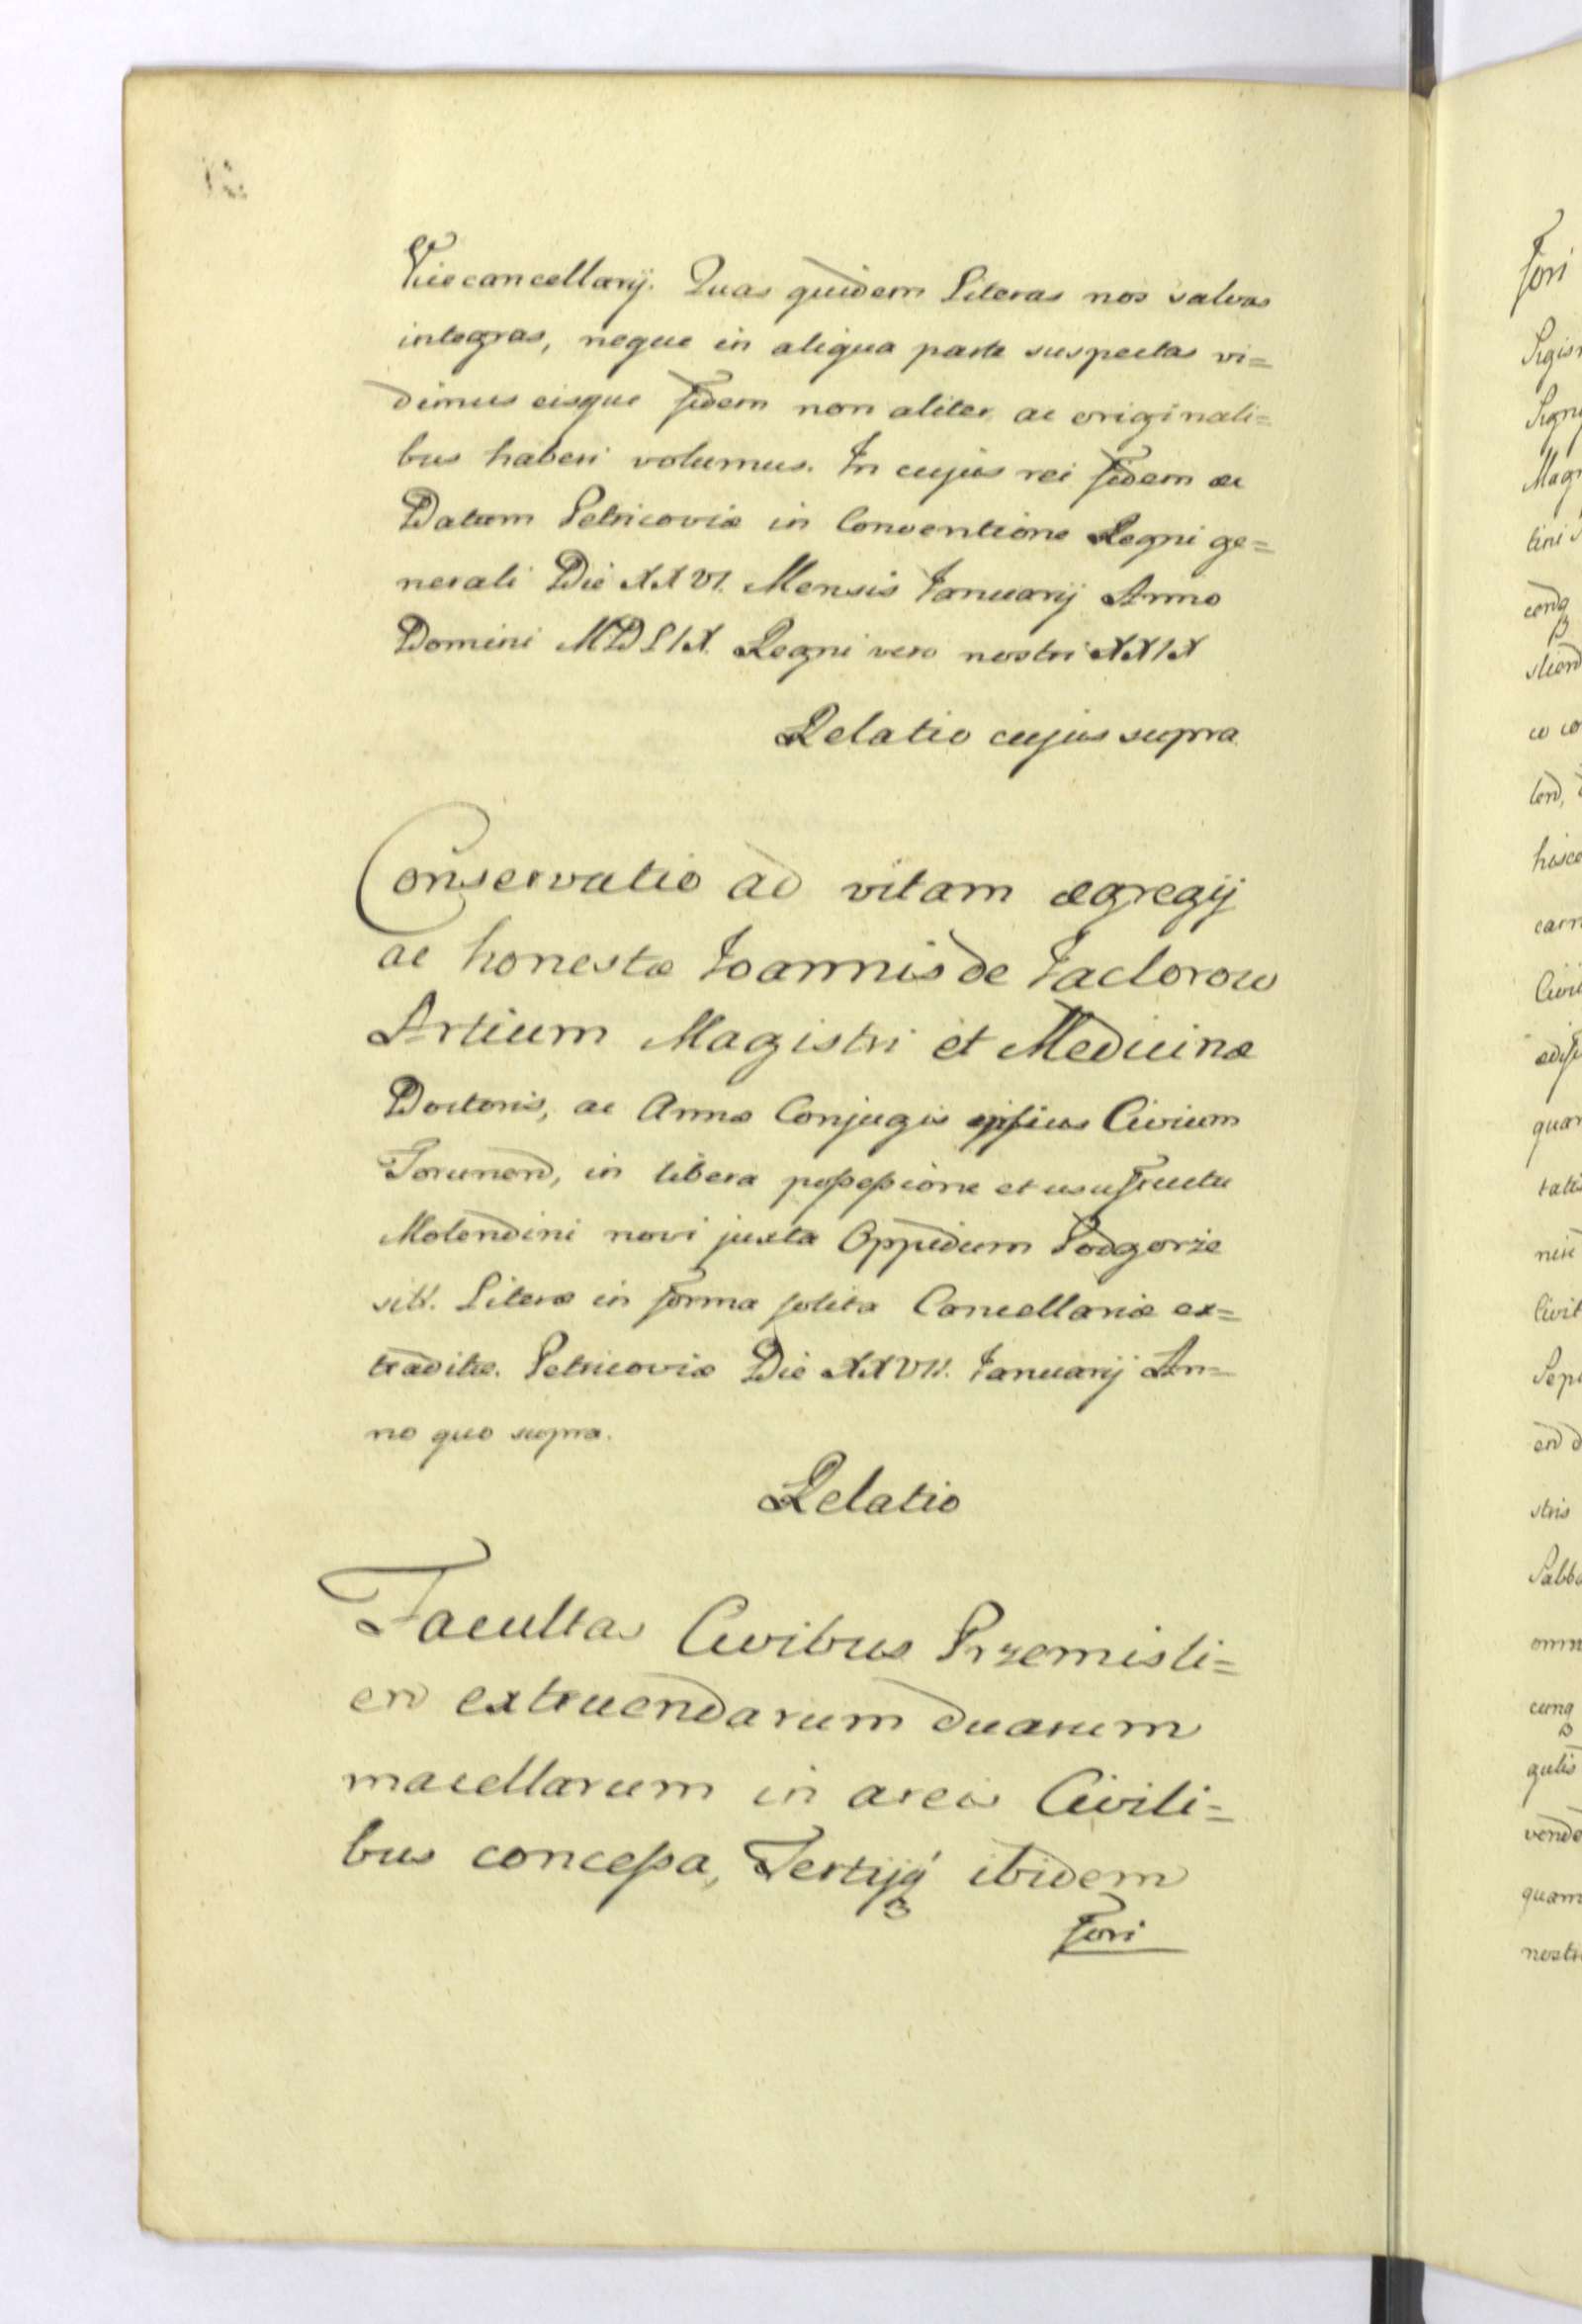 Vicecancellarij. Quas quidem Literas nos salvas
integras, neque in aliqua parte suspectas vi=
dimus eisque fidem non aliter ac originali=
bus haberi volumus. In cujus rei fidem &c
Datum Petricoviæ in Conventione Regni ge=
nerali Die XXVI. Mensis Januarij Anno
Domini MDLIX. Regni vero nostri XXIX
Relatio cujus supra
Conservatio ad vitam ægregij
ac honestæ Joannis de Jaclorow
Artium Magistri et Medicinæ
Doctoris, ac Annæ Conjugis ipsius Civium
Torunen, in libera possessione et usufructu
Molendini novi juxta Oppidum Podgorze
siti. Literæ in forma solita Cancellariæ ex=
traditæ. Petricoviæ Die XXVII. Januarij An=
no quo supra.
Relatio
Facultas Civibus Przemisli=
en extruendarum duarum
macellarum in areis Civili=
bus concessa, Tertijq ibidem
fori